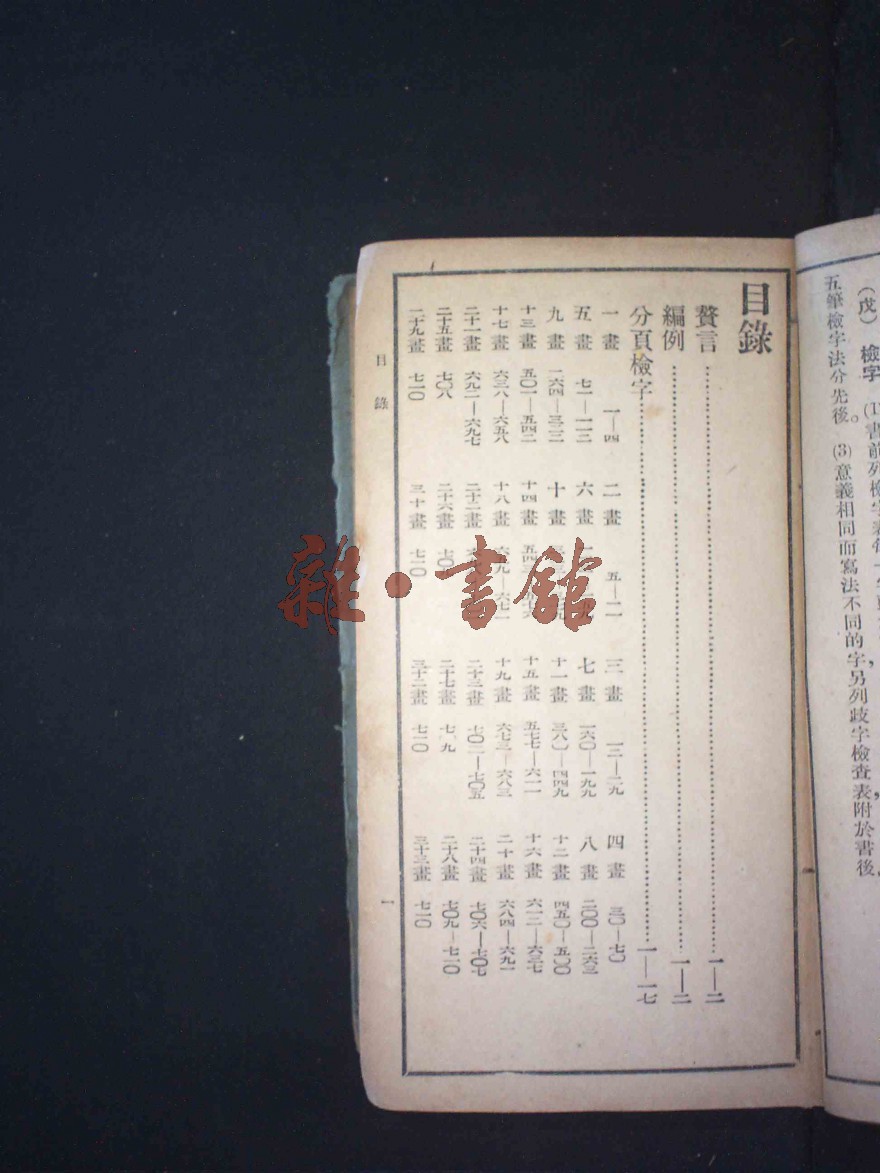 (戊) 檢字
五筆檢字法分先後。 (3)意義相同而寫法不同的字另列歧字檢查表附於書後。
目錄
贅言 一—二
編例 一—二
分頁檢字 一—一七
一畫 一—四 二畫 五—一一 三畫 一二—二九 四畫 三〇—七〇
五畫 七一—一一二 六畫 七畫 一六〇—一九九 八畫 二〇〇—二六三
九畫 二六四—三二二 十畫 十一畫 三八〇—四四九 十二畫 四五〇—五〇〇
十三畫 五〇一—五四二 十四畫 十五畫 五七七—六一一 十六畫 六一二—六三七
十七畫 六三八—六五八 十八畫 十九畫 六七三—六八三 二十畫 六八四—六九一
二十一畫 六九二—六九七 二十二畫 二十三畫 七〇二—七〇五 二十四畫 七〇六—七〇七
二十五畫 七〇八 二十六畫 二十七畫 二十八畫 七〇九—七一〇
二十九畫 七一〇 三十畫 七一〇 三十二畫 七一〇 三十三畫 七一〇
目錄 一
雜·書館